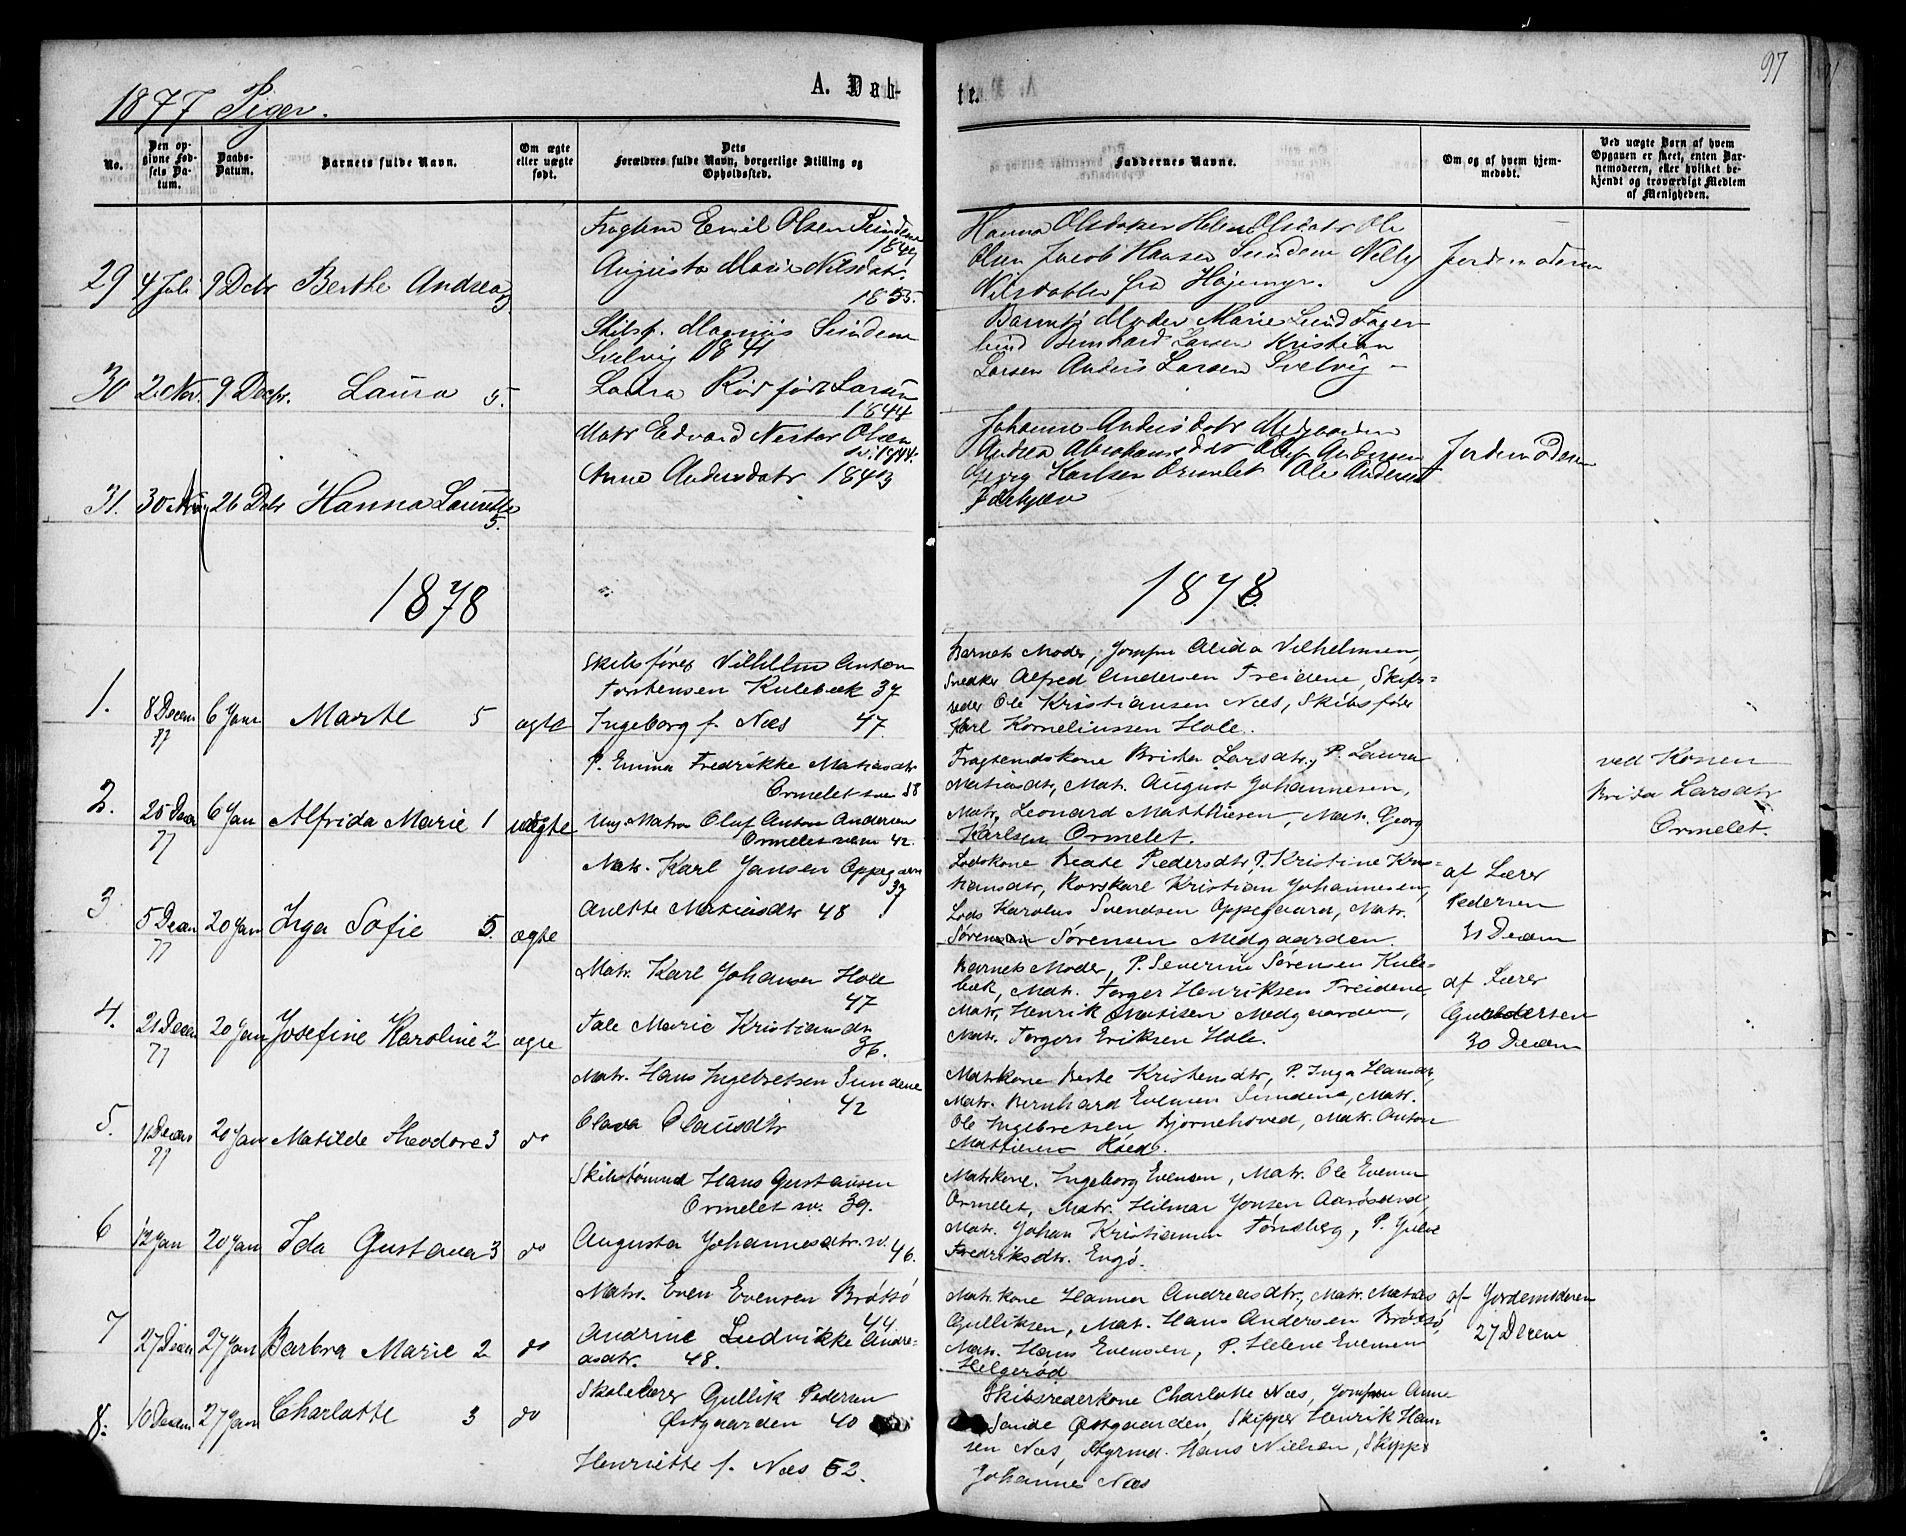 1877 Piger.
A. Dåb-
te.
97
No.
Den op-
givne Fød-
sels Da-
tum.
Daabs-
Datum.
Barnets fulde Navn.
Om ægte
eller uægte
født.
Dets
Forældres fulde Navn, borgerlige Stilling og
Opholdssted.
Faddernes Navne.
Om og af hvem hjem-
medøbt.
Ved uægte Børn af hvem
Opgaven er skeet, enten Bar-
nemoderen, eller hvilket be-
kjendt og troværdigt Medlem
af Menigheden.
29 4 Juli 9 Decbr Berthe Andrea
Emil Olsen Sundene
1849
Augusta Marie Nilsdatr.
1855.
Hanna Olsdatter Helene Olsdatr Ole
Olsen Jacob Hansen Sundene Nelly
Nilsdatter fra Højemyr.
Jordemoderen
30 2 Nov. 9 Decbr. Laura 5.
Skibsf. Magnus Sundene
Svelvig 1841
Laura Röd født Larsen
1844
Barnets Moder Marie Lund Fager-
lund Bernhard Larsen Kristian
Larsen Anders Larsen Svelvig
31. 30 Aug 26 Decbr Hanna Laurette
5.
Matr Edvard Nestor Olsen
1844.
Anne Andersdatr 1843
Johanne Andersdatr Medgaarden
Andrea Abrahamsdatr Oluf Andersen
Georg Karlsen Ormelet Ole Andersen
Jordemoderen
1878
1878
1. 8 Decem 77 6 Janr Marte 5 ægte
Skibsfører Vilhelm Anton
Torstensen Kulebæk 37
Ingeborg f. Næs 47.
Barnets Moder, Jomfru Alida Vilhelmsen,
Snedker Alfred Andersen Treidene, Skibs=
reder Ole Kristiansen Næs, Skibsfører
Karl Korneliussen Hole.
2. 25 Decem 77 6 Jan Alfrida Marie 1 uægte
P. Emma Fredrikke Matiasdtr
Ormelet 58
Ung Matros Oluf Anton Andersen
Ormelet 42.
Fragtemdskone Brida Larsdtr, P. Laura
Matiasdtr, Mat. August Johannesen,
Matr. Leonard Matthiesen, Mat. Georg
Karlsen Ormelet.
ved Konen
Brida Larsdtr
Ormelet.
3 5 Decem 77 20 Jan Inga Sofie 5. ægte
Matr. Karl Jansen Oppegaarn
37
Anette Matiasdtr 48
Lodskone Beate Pedersdtr, P. Kristine Kris=
tiansdtr, Rorskarl Kristian Johannesen,
Lods Karolus Svendsen Oppegaard, Matr.
Sørensen Medgaarden.
af Lærer
Pedersen
31 Decem
4. 21 Decem 77 20 Jan Josefine Karoline 2 ægte
Matr. Karl Johansen Hole
47
Tale Marie Kristiansdtr
36.
Barnets Moder, P. Severine Sørensen Kule=
bæk, Mat. Torger Henriksen Treidene,
Matr. Henrik Matisen Medgaarden,
Matr. Torgers Eriksen Hole.
af Lærer
Gulbdersen
30 Decem
5. 11 Decem 77 20 Jan Matilde Theodore 3 do
Matr. Hans Ingebretsen Sundene
42
Olava Olausdtr
Matrkone Berte Kristensdtr, P. Inga Hansdtr,
Matr. Bernhard Evensen Sundene, Matr.
Ole Ingebretsen Bjørnehoved, Matr. Anton
Mattisen Røed.
6 12 Jan 20 Jan Ida Gustava 3 do
Skibstømmd Hans Gustavsen
Ormelet 39.
Augusta Johannesdtr. 46.
Matrkone. Ingeborg Evensen, Matr. Ole Evensen
Ormelet, Matr. Hilmar Jonsen Aarøsund,
Matr. Johan Kristiansen Tønsberg, P. Gusta
Fredriksdtr. Engø.
7 27 Decem 27 Jan Barbra Marie 2 do
Matr. Even Evensen Brøtsø
44
Andrine Ludvikke Andre=
asdtr. 48.
Matrkone Hanna Andreasdtr, Matr. Matias
Gulliksen, Mat. Hans Andersen Brøtsø,
Matr. Hans Evensen, P. Helene Evensen
Helgerød
af Jordemoderen
27 Decem
8. 16 Decem 27 Jan Charlotte 3 do
Skolelærer Gullik Pedersen
Østgaarden 40
Henriette f. Næs 52.
Skibsrederkone Charlotte Næs, Jomfru Anne
Sande Østgaarden, Skipper Henrik Han-
sen Næs, Styrmd. Hans Nielsen, Skipp
Johannes Næs